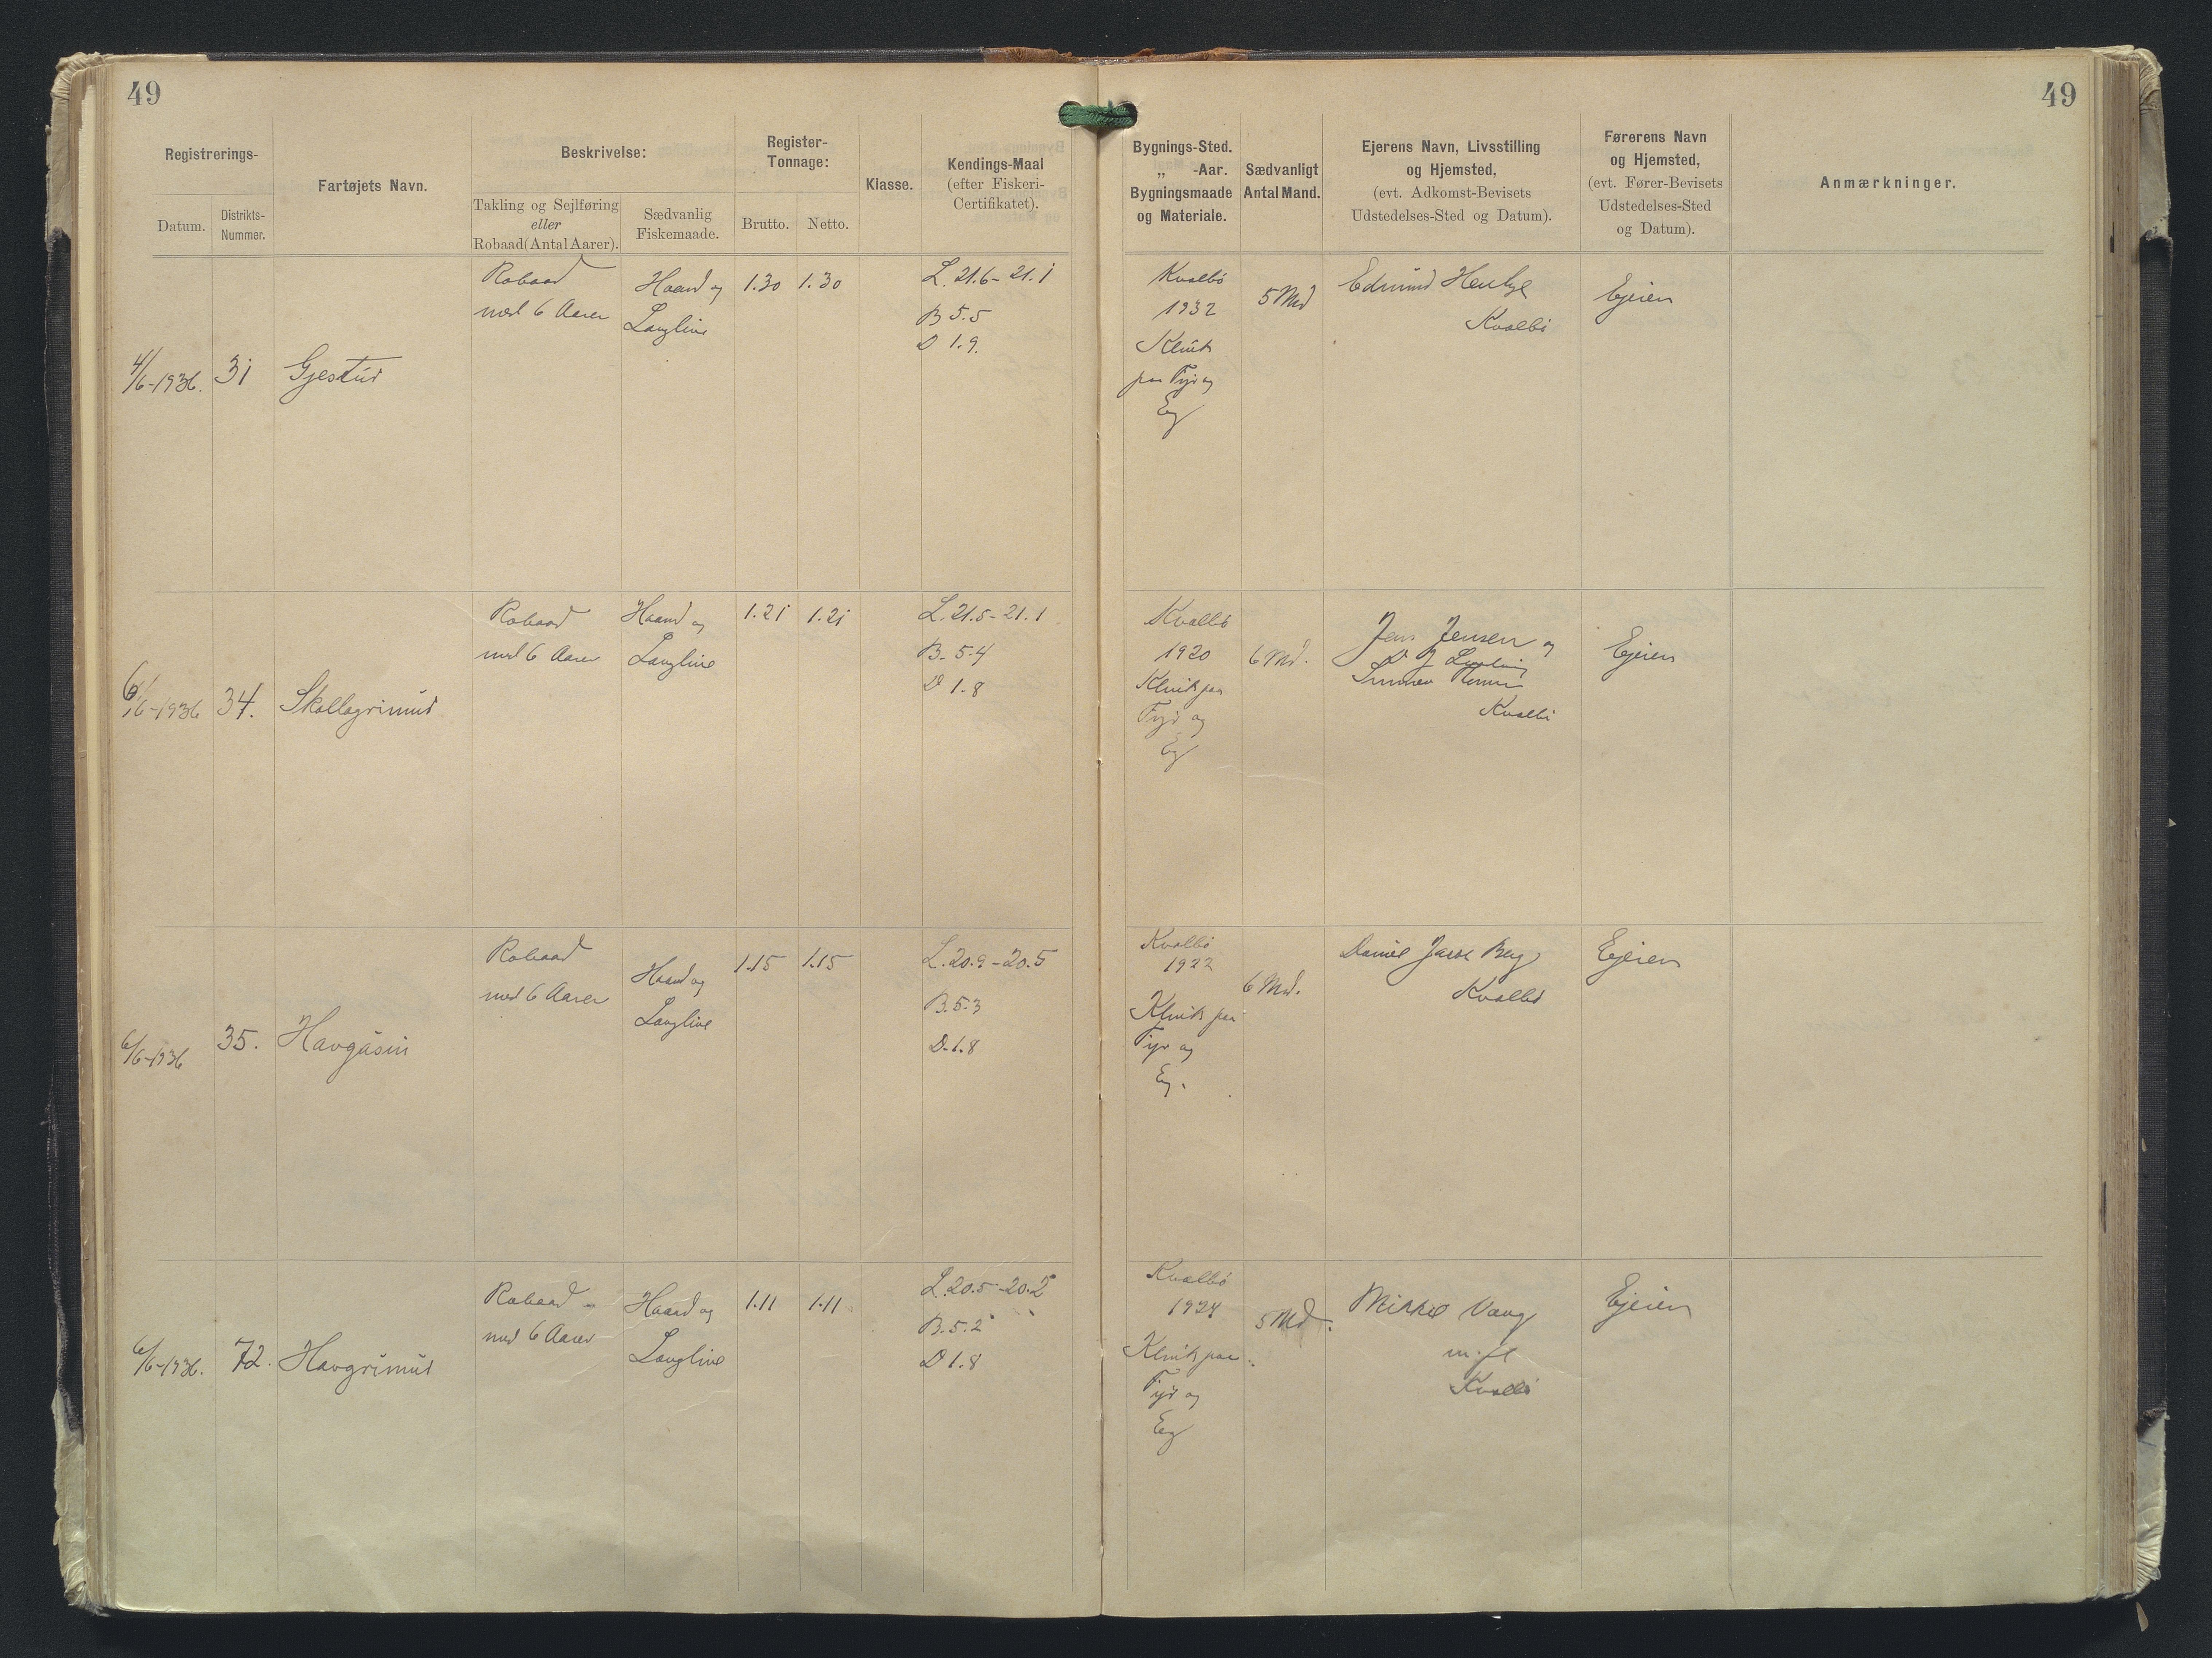 49
49
Registrerings-
Datum.
Distrikts-
Nummer.
Fartøjets Navn.
Beskrivelse:
Takling og Sejlføring
eller
Robaad (Antal Aarer).
Sædvanlig
Fiskemaade.
Register-
Tonnage:
Brutto.
Netto.
Klasse.
Kendings-Maal
(efter Fiskeri-
Certifikatet).
Bygnings-Sted.
„ -Aar.
Bygningsmaade
og Materiale.
Sædvanligt
Antal Mand.
Ejerens Navn, Livsstilling
og Hjemsted,
(evt. Adkomst-Bevisets
Udstedelses-Sted og Datum).
Førerens Navn
og Hjemsted,
(evt. Fører-Bevisets
Udstedelses-Sted
og Datum).
Anmærkninger.
4/6-1936.
31
Gjestur
Robaad
med 6 Aarer
Haand og
Langline
1.30
1.30
L. 21.6-21.1
B 5.5
D 1.9.
Kvalbö
1932
Klink
paa Fyr og
Eg
5 Md
Edmund
Kvalbö
Ejeren
6/6-1936
34.
Skallagrimur
Robaad
med 6 Aarer
Haand og
Langline
1.21
1.21
L. 21.5-21.1
B. 5.4
D 1.8
Kvalbö
1920
Klink paa
Fyr og
Eg
6 Md.
Jens Jensen og
Kvalbö
Ejeren
6/6-1936
35.
Havgásin
Robaad
med 6 Aarer
Haand og
Langline
1.15
1.15
L. 20.9-20.5
B. 5.3
D. 1.8
Kvalbö
1922
Klink paa
Fyr og
Eg.
6 Md.
Daniel Berg
Kvalbö
Ejeren
6/6-1936.
72.
Havgrimur
Robaad
med 6 Aarer
Haand og
Langline
1.11
1.11
L. 20.5-20.2
B. 5.2
D 1.8
Kvalbö
1924
Klink paa
Fyr og
Eg
5 Md.
Mikkel Vang
m. fl
Kvalbö
Ejeren